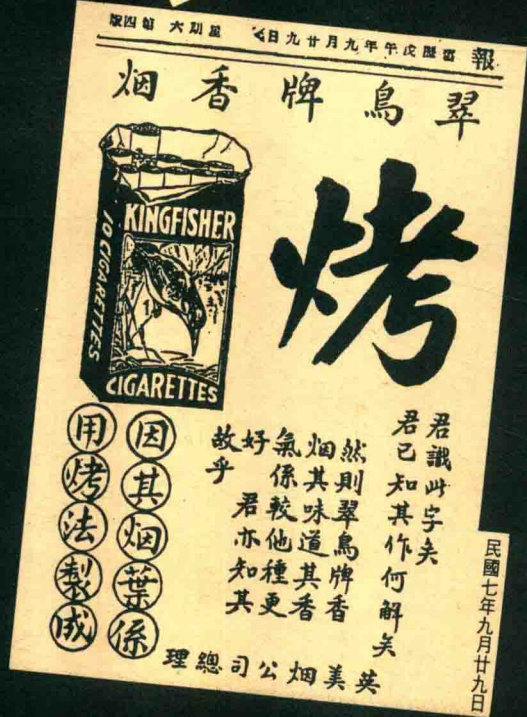 報 戊午年九月廿九日 星期六 第四版
翠鳥牌香烟
烤
KINGFISHER
10 CIGARETTES
CIGARETTES
君識此字矣
君已知其作何解矣
然則翠鳥牌香
烟其味道其香
氣係較他種更
好 君亦知其
故乎
因其烟葉係
用烤法製成
英美烟公司總理
民國七年九月廿九日